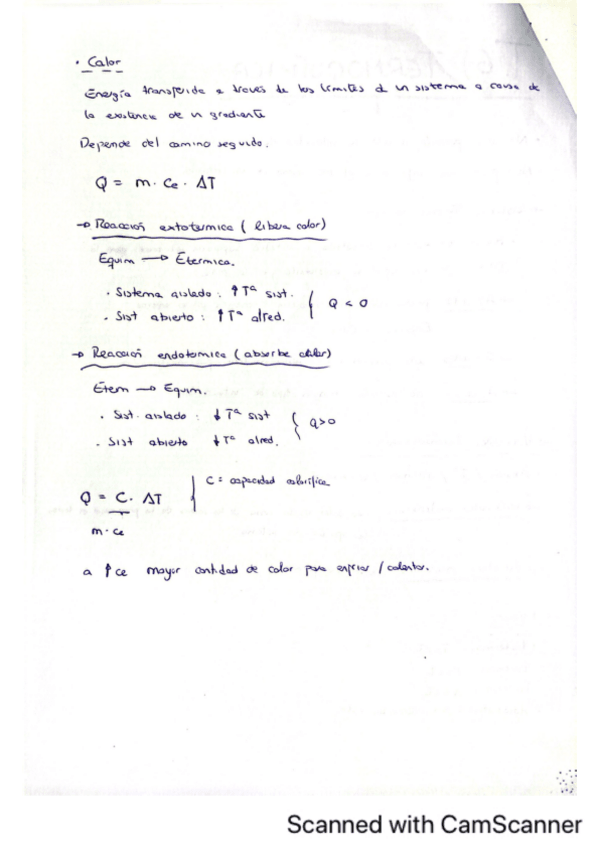 · Calor
Energía transferida a través de los límites d un sistema a causa de
la existencia de un gradiente
Depende del camino seguido.
Q = m · Ce · ΔT
→ Reacción exotermica ( libera calor)
Equim → Etermica.
· Sistema aislado : ↑ Tª sist.
· Sist abierto : ↑ Tª alred. } Q < 0
→ Reacción endotermica (absorbe calor)
Eterm → Equim.
· Sist. aislado : ↓ Tª sist
· Sist abierto ↓ Tª alred. } Q>0
Q = C · ΔT | C = capacidad calorífica
m · ce
a ↑ ce mayor cantidad de calor para enfriar / calentar.
Scanned with CamScanner